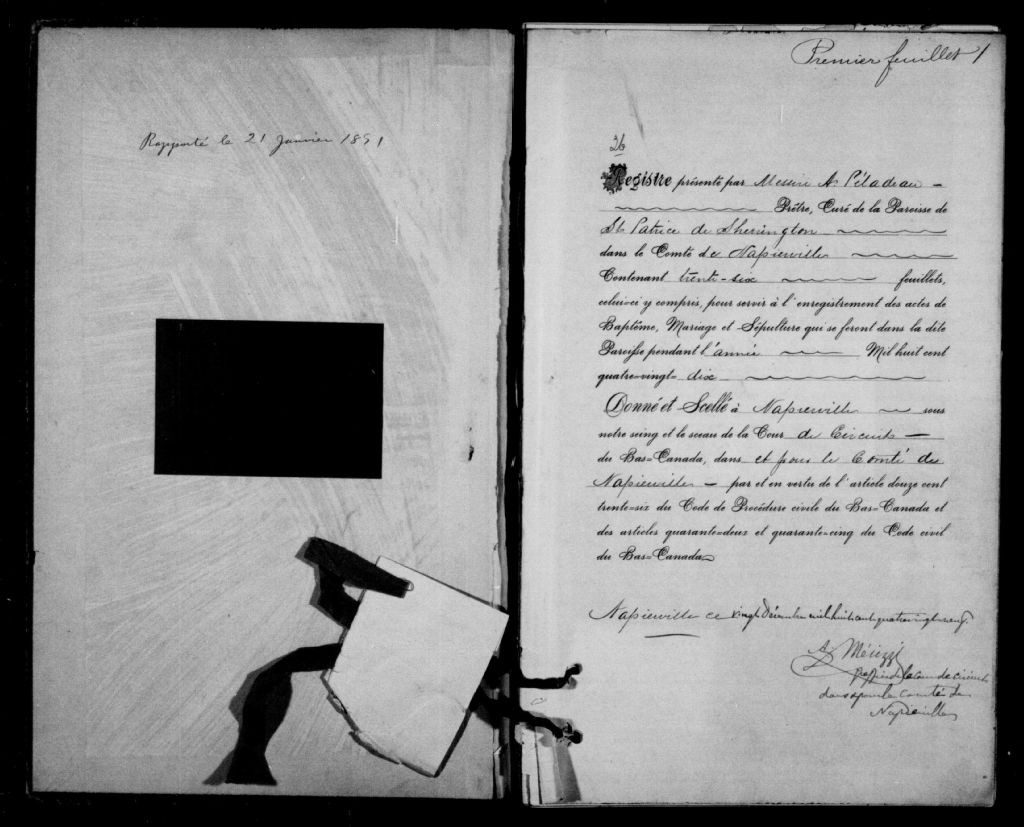 Rapporté le 21 Janvier 1891
Premier feuillet 1
26
Registre présenté par Messire A. Péladeau
Prêtre, Curé de la Paroisse de
St. Patrice de Sherrington
dans le Comté de Napierville
Contenant trente-six feuillets,
celui-ci y compris, pour servir à l'enregistrement des actes de
Baptême, Mariage et Sépulture qui se feront dans la dite
Paroisse pendant l'année Mil huit cent
quatre-vingt- dix
Donné et Scellé à Napierville sous
notre seing et le sceau de la Cour de Circuit
du Bas-Canada, dans et pour le Comté de
Napierville par et en vertu de l'article douze cent
trente-six du Code de Procédure civile du Bas-Canada et
des articles quarante-deux et quarante-cinq du Code civil
du Bas-Canada
Napierville ce vingt Décembre mil huit cent quatre vingt neuf.
Greffier de la Cour de circuit
dans et pour le comté de
Napierville